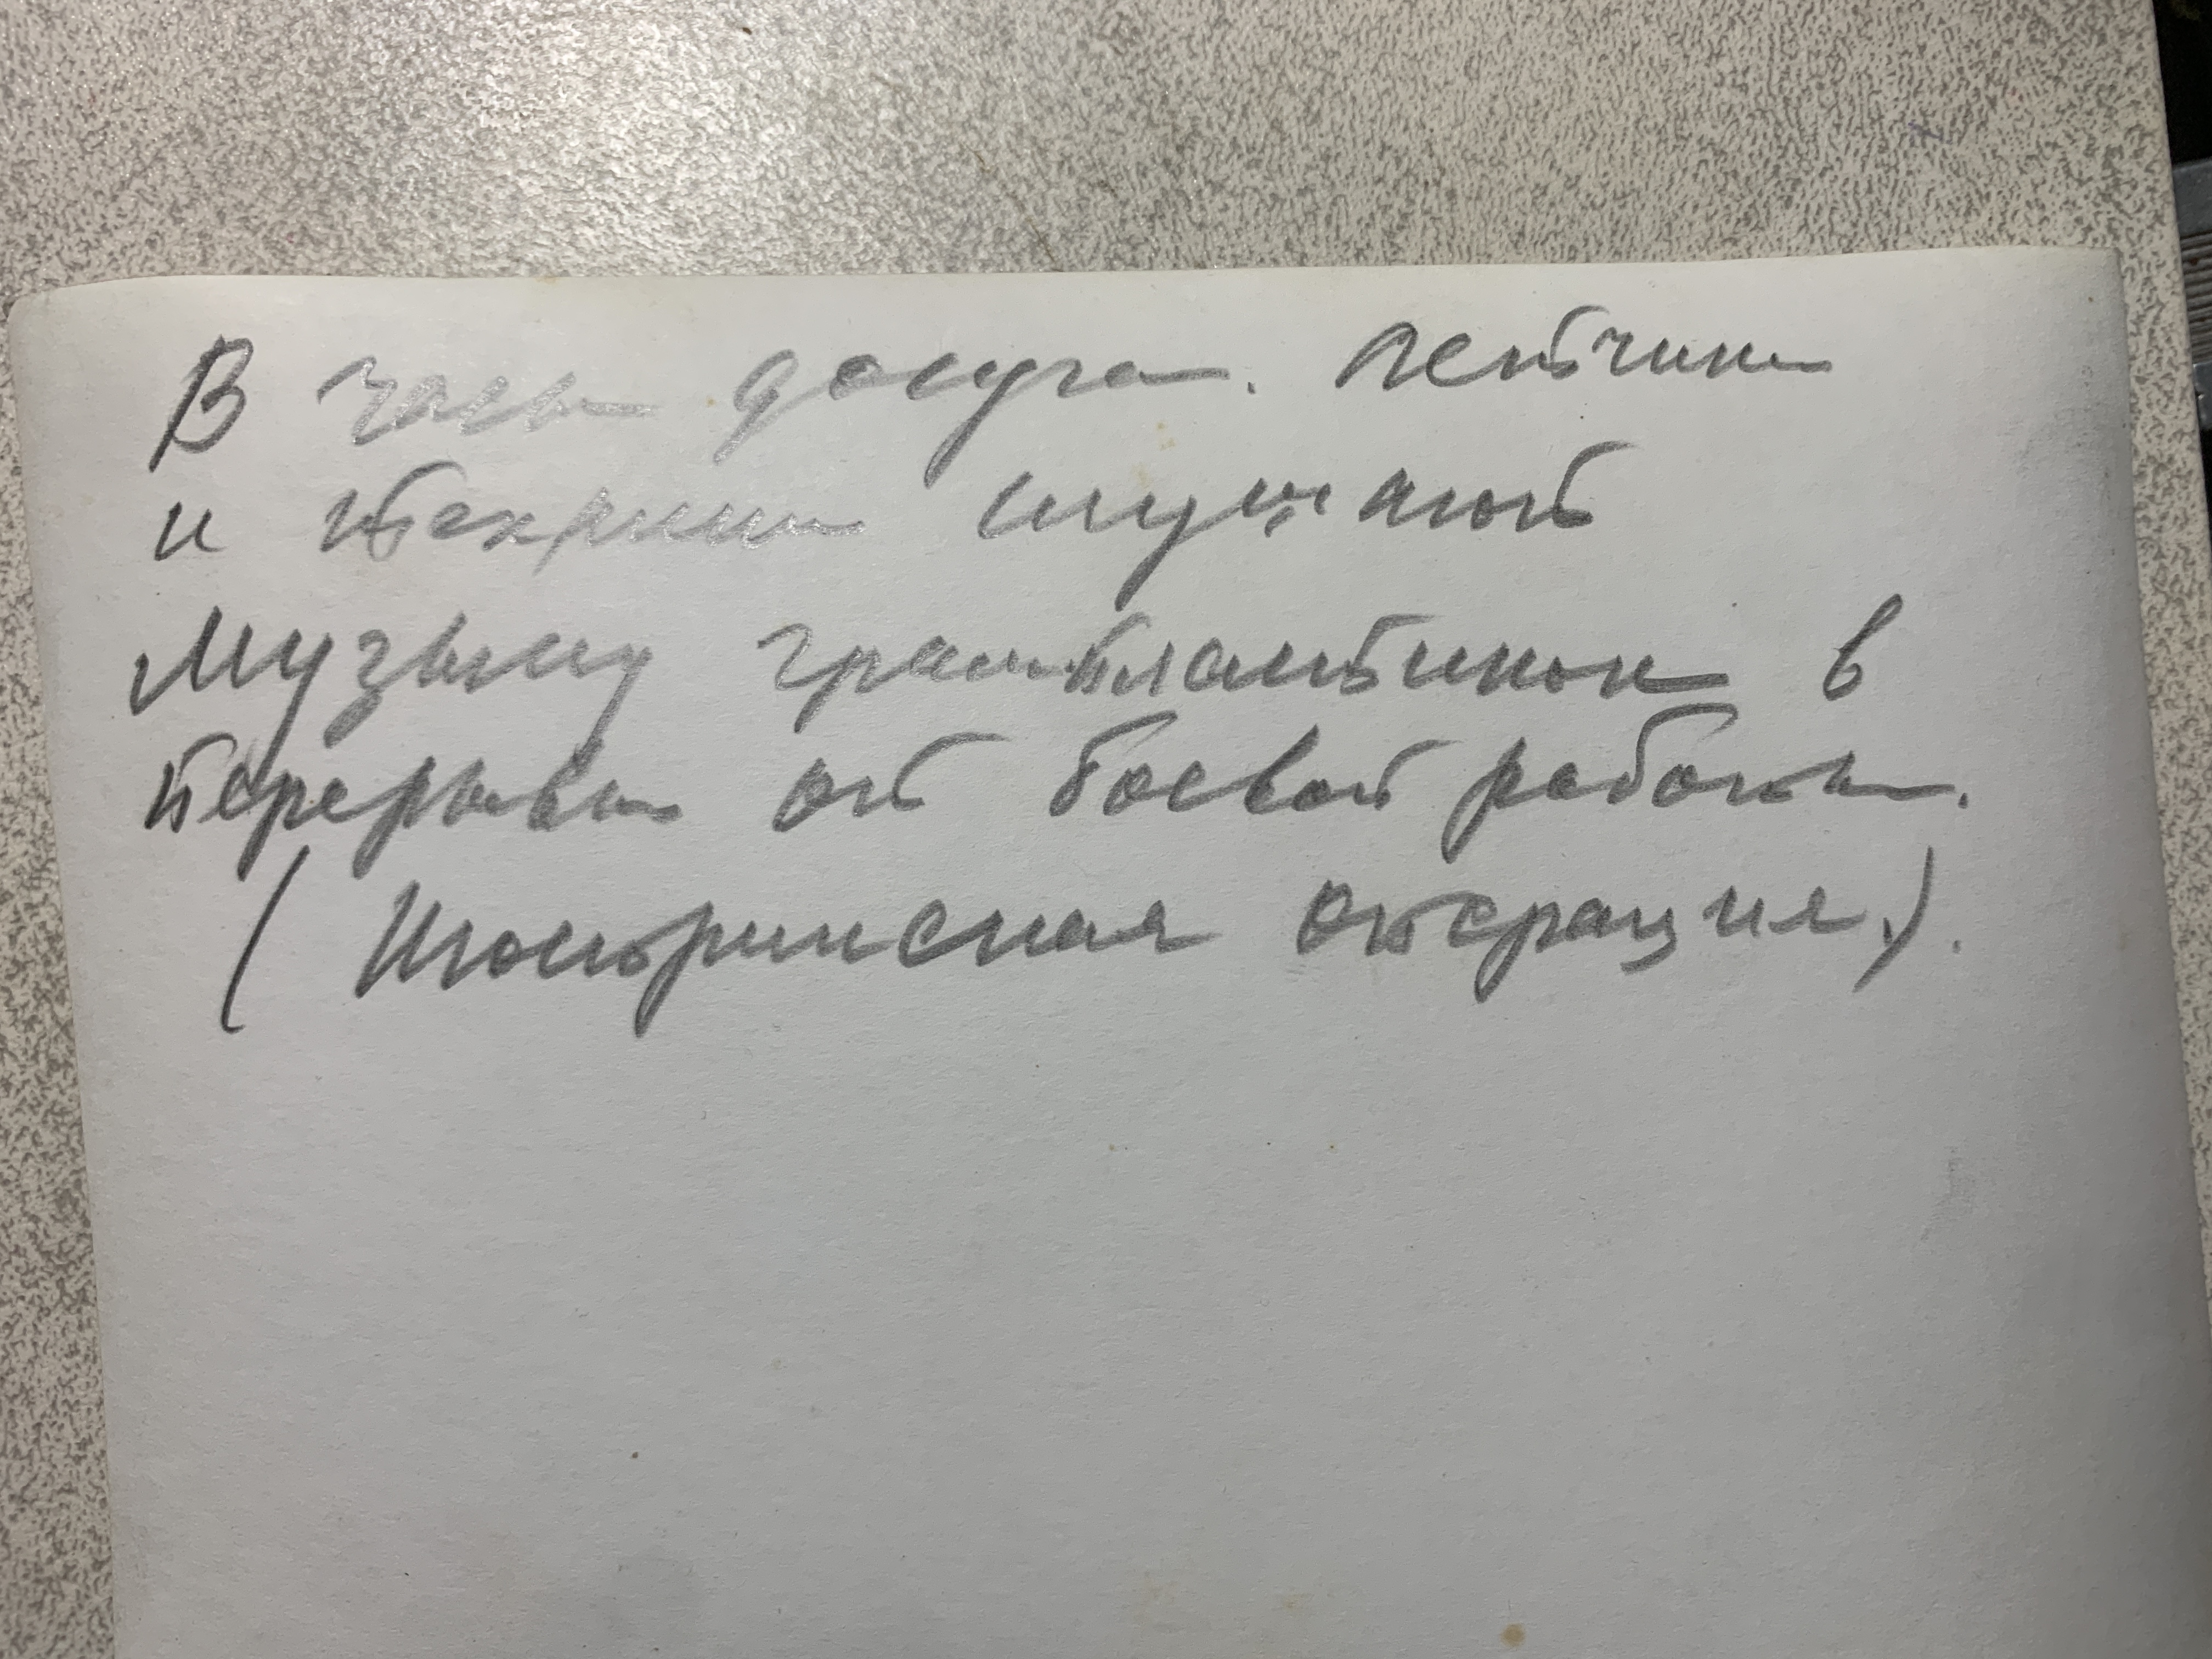 В часы досуга. Летчики
и техники слушают
музыку грампластинок в
перерывы от боевой работы.
( операция.).